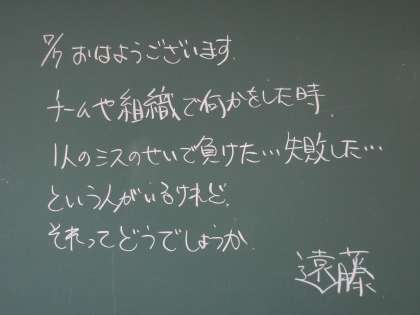 9/7 おはようございます.
チームや組織で何かをした時.
1人のミスのせいで負けた…失敗した…
という人がいるけれど.
それってどうでしょうか.
遠藤